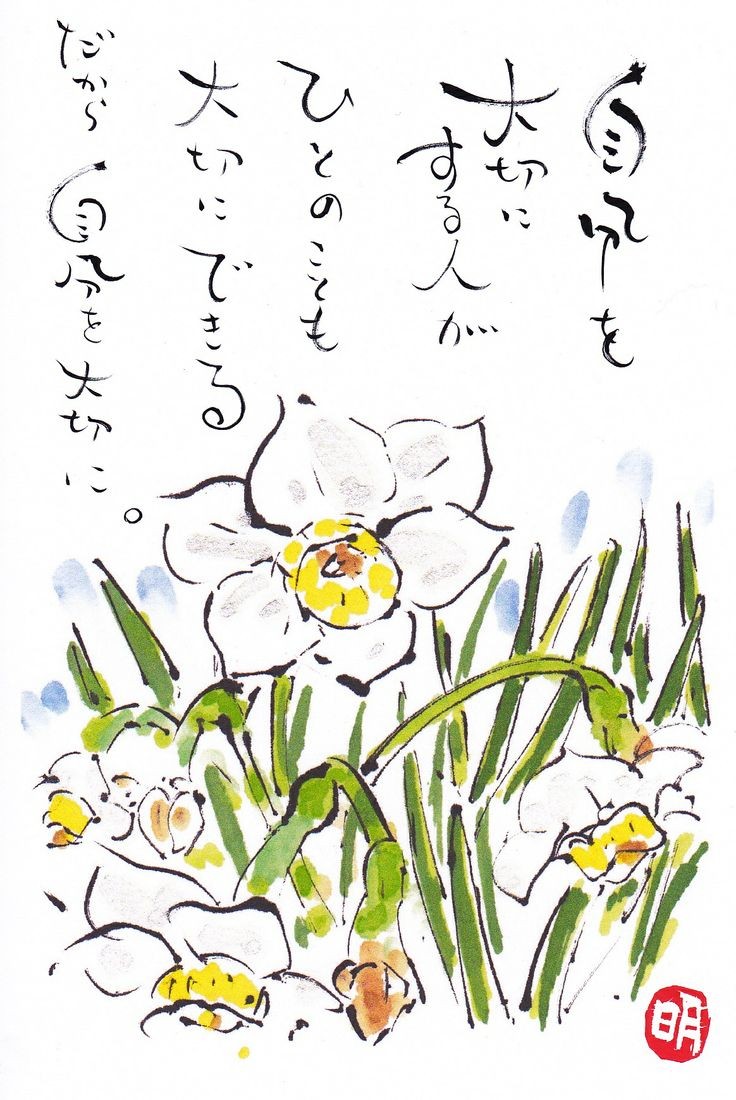 自分を
大切に
する人が
ひとのことも
大切にできる
だから自分を大切に。
明